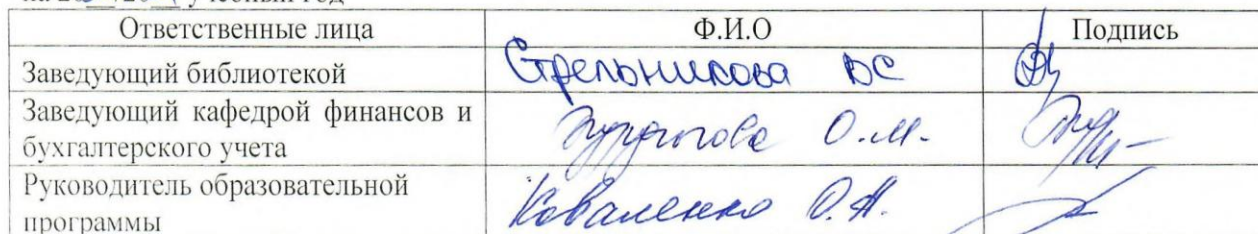 учебный год
Ответственные лица Ф.И.О Подпись
Заведующий библиотекой Стрельникова ВС
Заведующий кафедрой финансов и
бухгалтерского учета О.М.
Руководитель образовательной
программы Коваленко О.А.